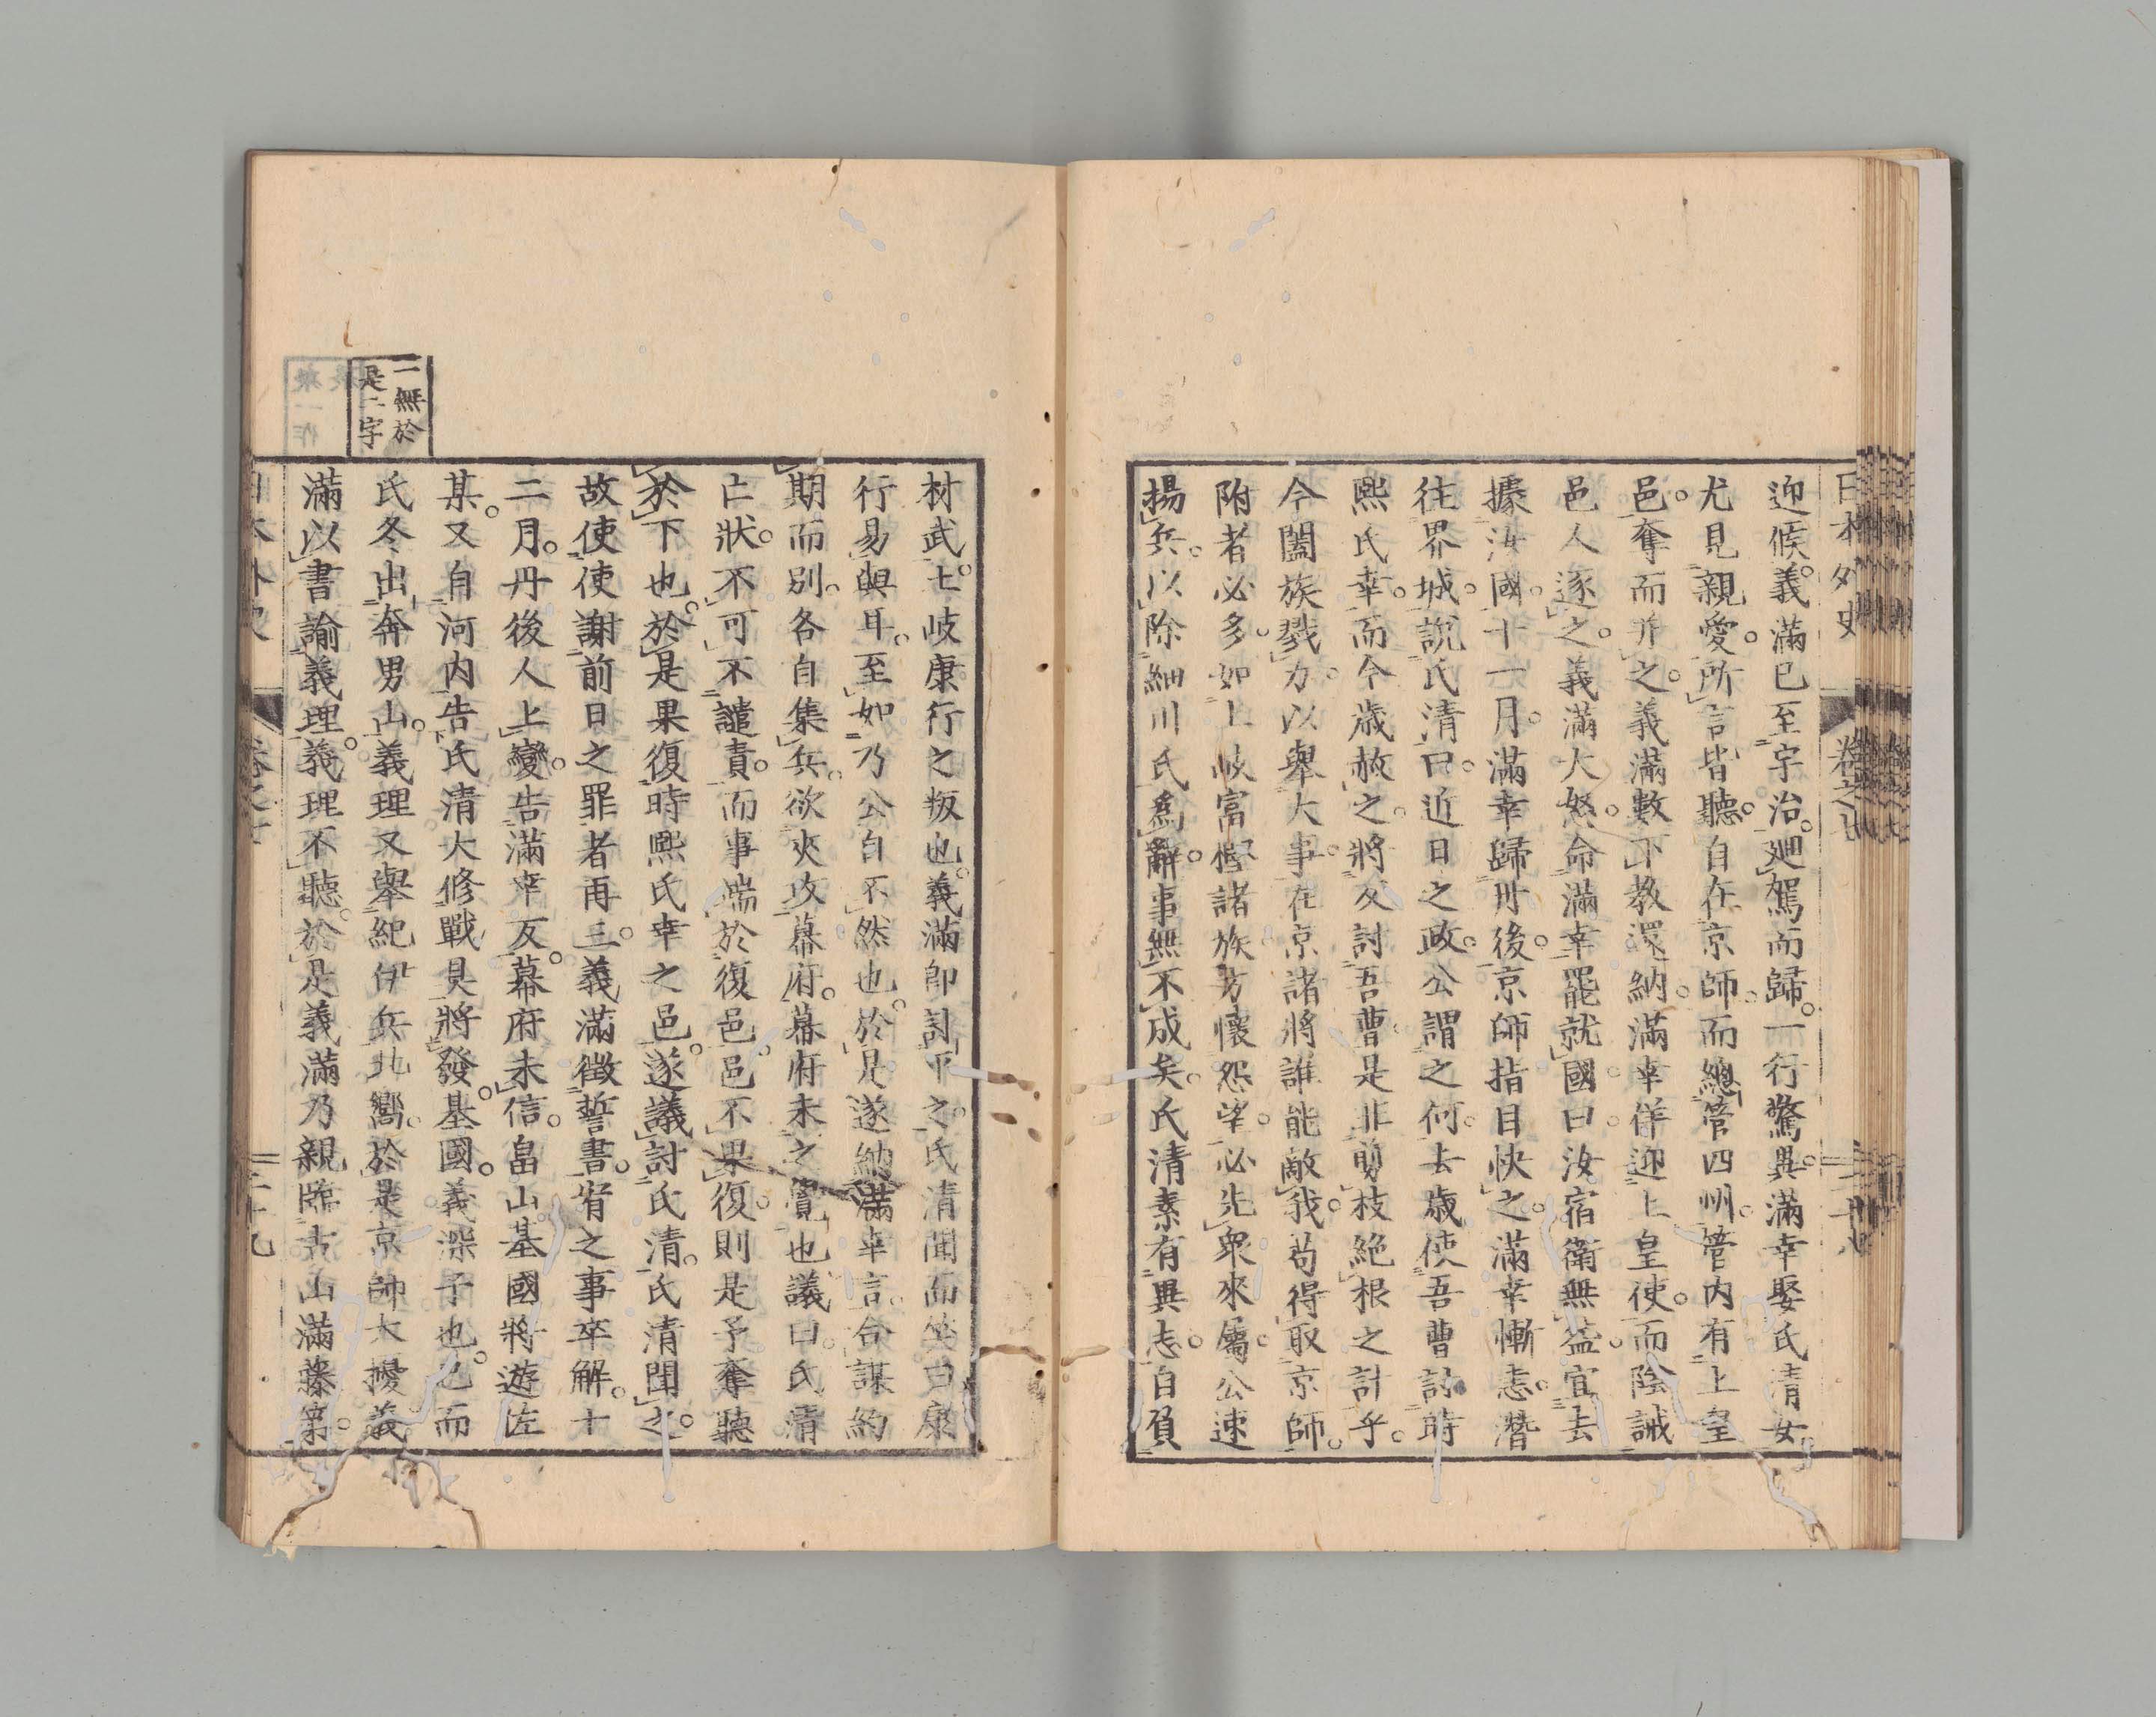 日本外史 卷之七 二十八
迎候。義滿已至宇治。廻駕而歸。一行驚異。滿幸娶氏清女
尤見親愛。所言皆聽。自在京師。而總管四州。管内有上皇
邑。奪而并之。義滿數下教還納。滿幸佯迎上皇使。而陰誡
邑人逐之。義滿大怒。命滿幸罷就國。曰汝宿衛無益。宜去
據汝國。十一月。滿幸歸丹後。京師指目快之。滿幸慚恚。潛
往界城。說氏清曰。近日之政。公謂之何。去歲使吾曹討時
熙氏幸。而今歲赦之。將反討吾曹。是非剪枝絕根之計乎。
今闔族戮力。以舉大事。在京諸將誰能敵我。苟得取京師。
附者必多。如土岐富樫諸族。方懷怨望。必先衆來屬。公速
揚兵。以除細川氏爲辭。事無不成矣。氏清素有異志。自負
材武。土岐康行之叛也。義滿卽討平之。氏清聞而笑曰。康
行易與耳。至如乃公自不然也。於是遂納滿幸言。合謀約
期而別。各自集兵。欲夾攻幕府。幕府未之覺也。議曰。氏清
亡狀。不可不譴責。而事端於復邑。邑不果復。則是予奪聽
於下也。於是果復時熙氏幸之邑。遂議討氏清。氏清聞之。
故使使謝前日之罪者再三。義滿徵誓書。宥之事卒解。十
二月。丹後人上變。告滿幸反。幕府未信。畠山基國將遊佐
某。又自河内告氏清大修戰具將發。基國。義深子也。已而
氏冬出奔男山。義理又舉紀伊兵北嚮。於是京師大擾。義
滿以書諭義理。義理不聽。於是義滿乃親臨古山滿藤第。
一無於
是二字
日本外史 卷之七 二十九